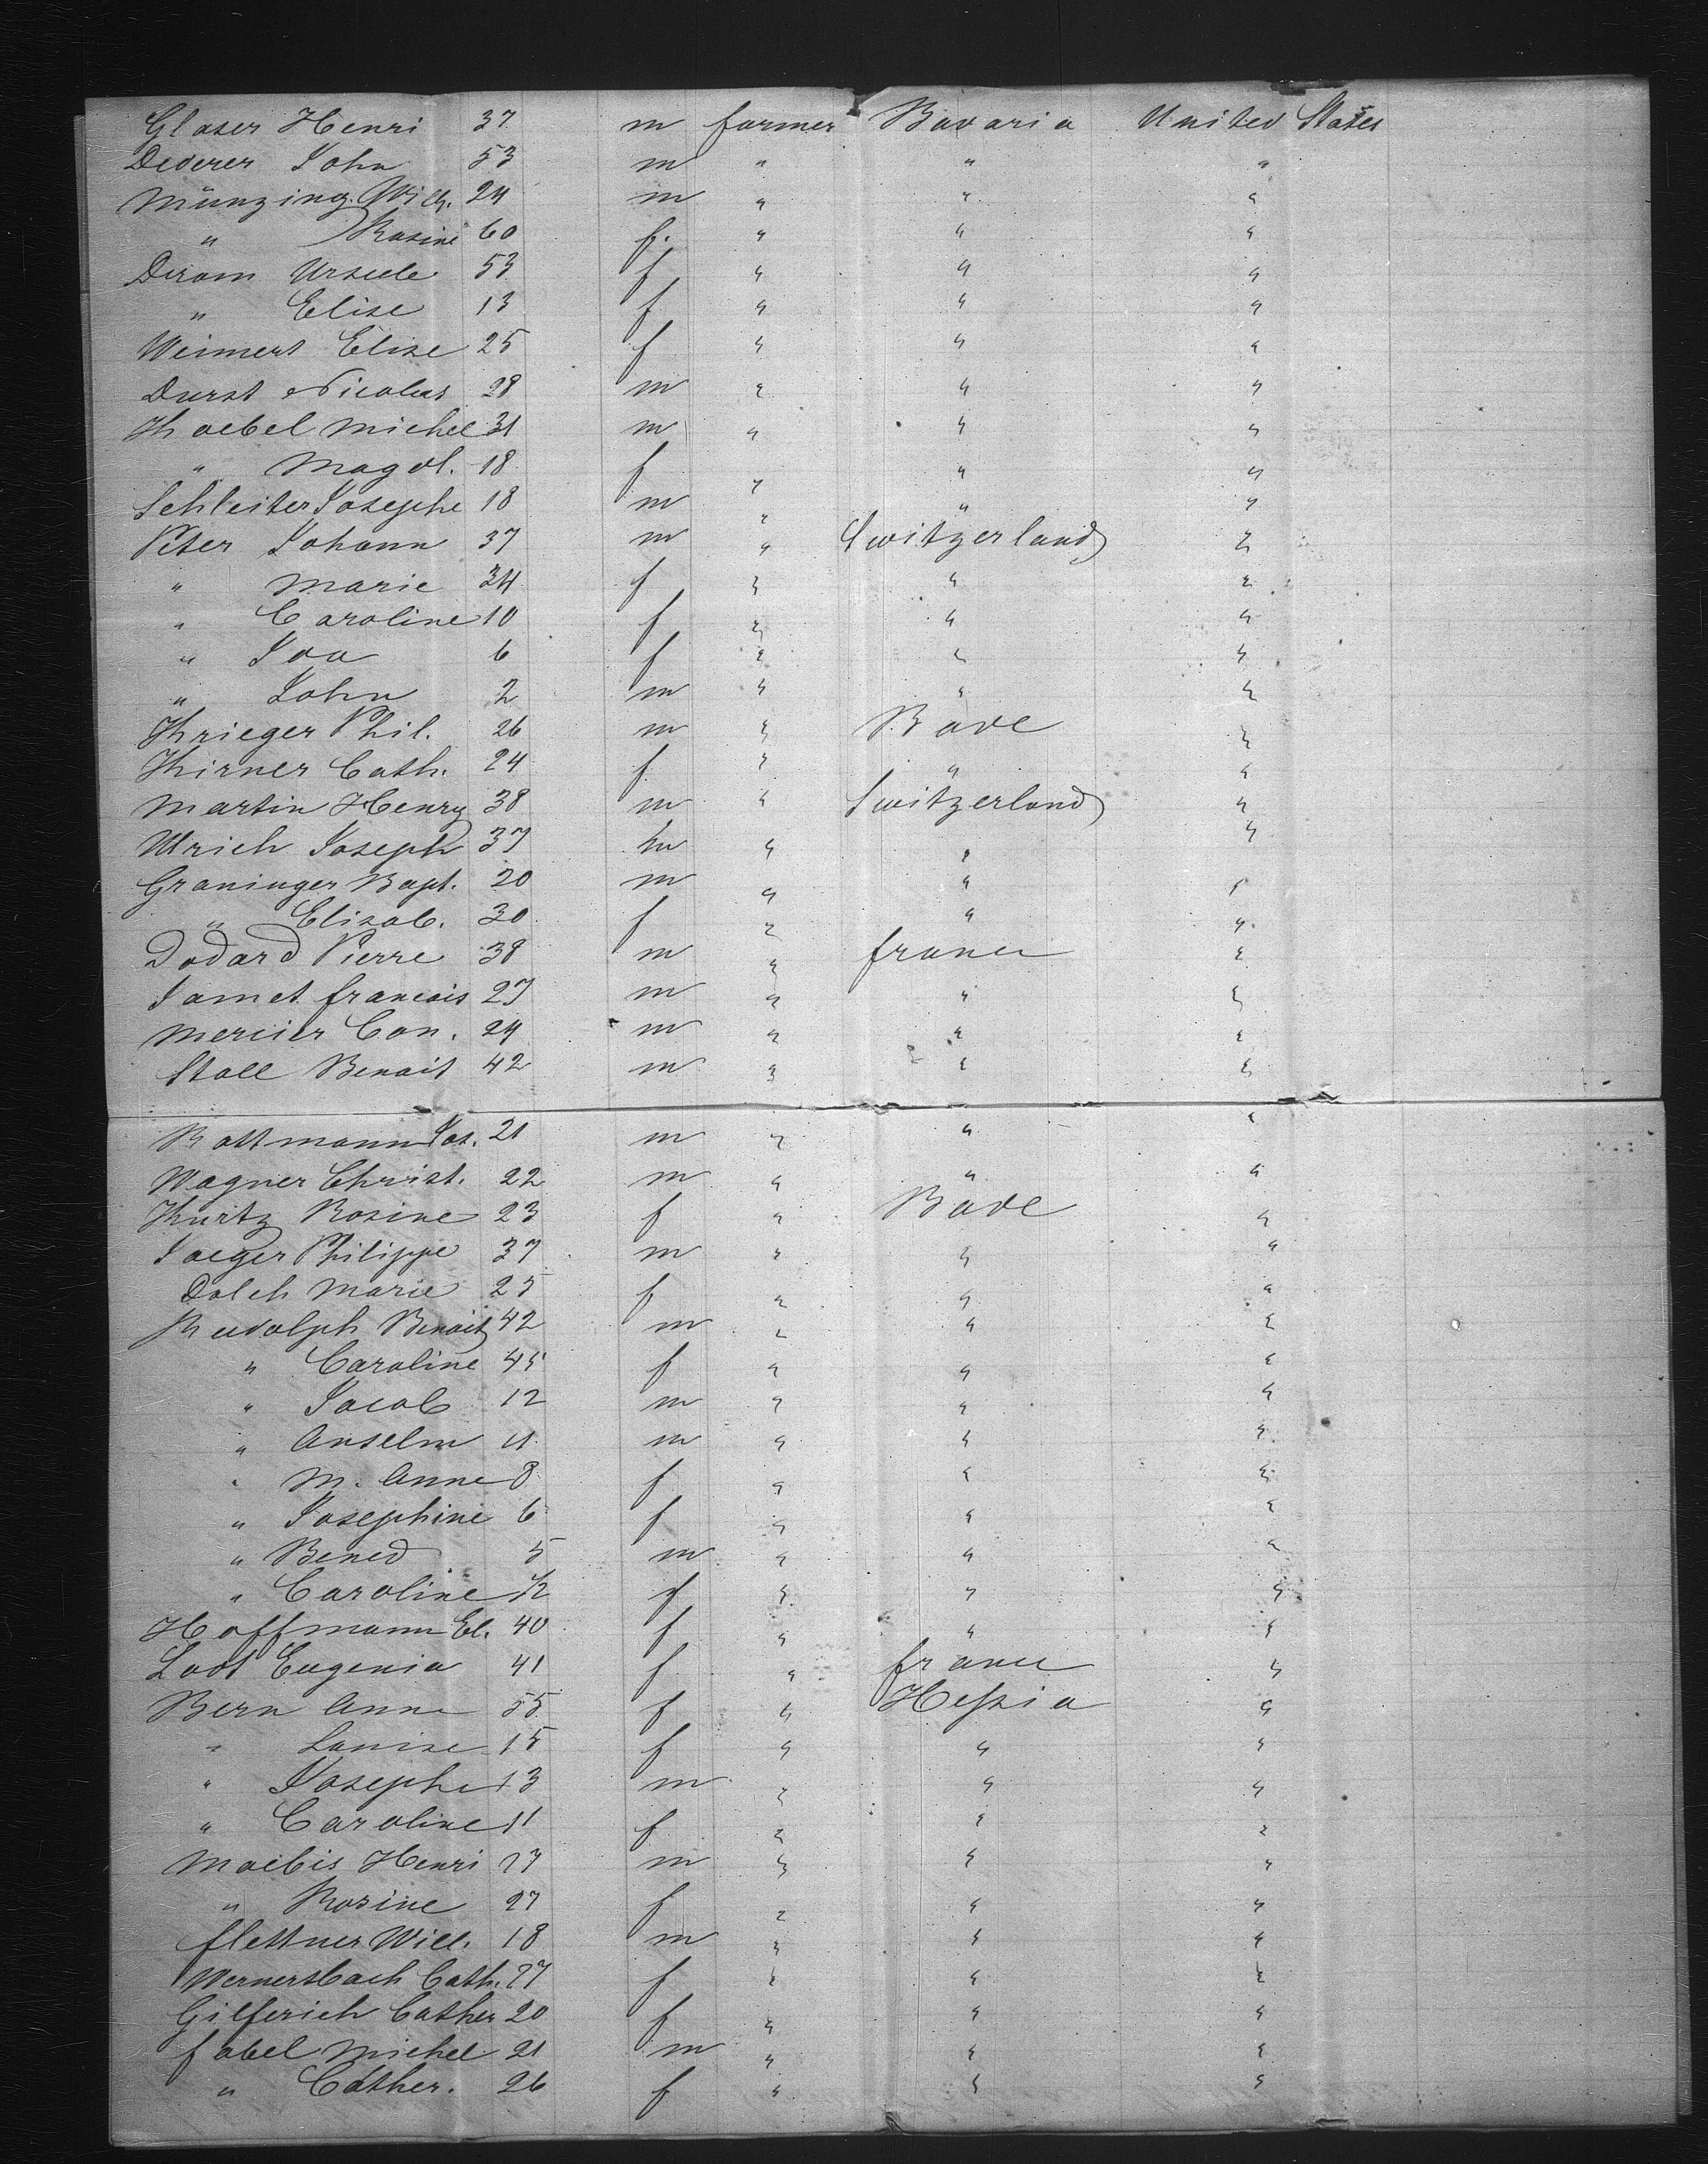 Glaser Henri 37 m farmer Bavaria United States
Dederer John 53 m " " "
Münzing Wilh. 24 m " " "
" Rosine 60 f. " " "
Diram Ursule 53 f " " "
" Elise 13 f " " "
Weimert Elise 25 f " " "
Durst Nicolas 28 m " " "
Kaebel Michel 31 m " " "
" Magdl. 18 f " " "
Schleiter Josephe 18 m " " "
Peter Johann 37 m " Switzerland "
" Marie 34 f " " "
" Caroline 10 f " " "
" Ida 6 f " " "
" John 2 m " " "
Krieger Phil. 26 m " Bade "
Kirner Cath. 24 f " " "
Martin Henry 38 m " Switzerland "
Ulrich Joseph 37 m " " "
Graninger Bapt. 20 m " " "
" Elisab. 30 f " " "
Dodard Pierre 38 m " france "
Jamet francois 27 m " " "
Mercier Con. 24 m " " "
Stoll Benoit 42 m " " "
Rottmann Jos. 21 m " " "
Wagner Christ. 22 m " " "
Kurtz Rosine 23 f " Bade "
Jaeger Philippe 37 m " " "
Dolch Marie 25 f " " "
Rudolph Benoit 42 m " " "
" Caroline 45 f " " "
" Jacob 12 m " " "
" Anselm 11 m " " "
" M. Anne 8 f " " "
" Josephine 6 f " " "
" Bened 5 m " " "
" Caroline 1/2 f " " "
Hoffmann El. 40 f " " "
Lodt Eugenia 41 f " france "
Bern Anne 55 f " Heſsia "
" Louise 15 f " " "
" Josephe 13 m " " "
" Caroline 11 f " " "
Moebis Henri 27 m " " "
" Rosine 27 f " " "
flettner Will. 18 m " " "
Wernersbach Cath. 27 f " " "
Gilferich Cather 20 f " " "
fabel Michel 21 m " " "
" Cather. 26 f " " "